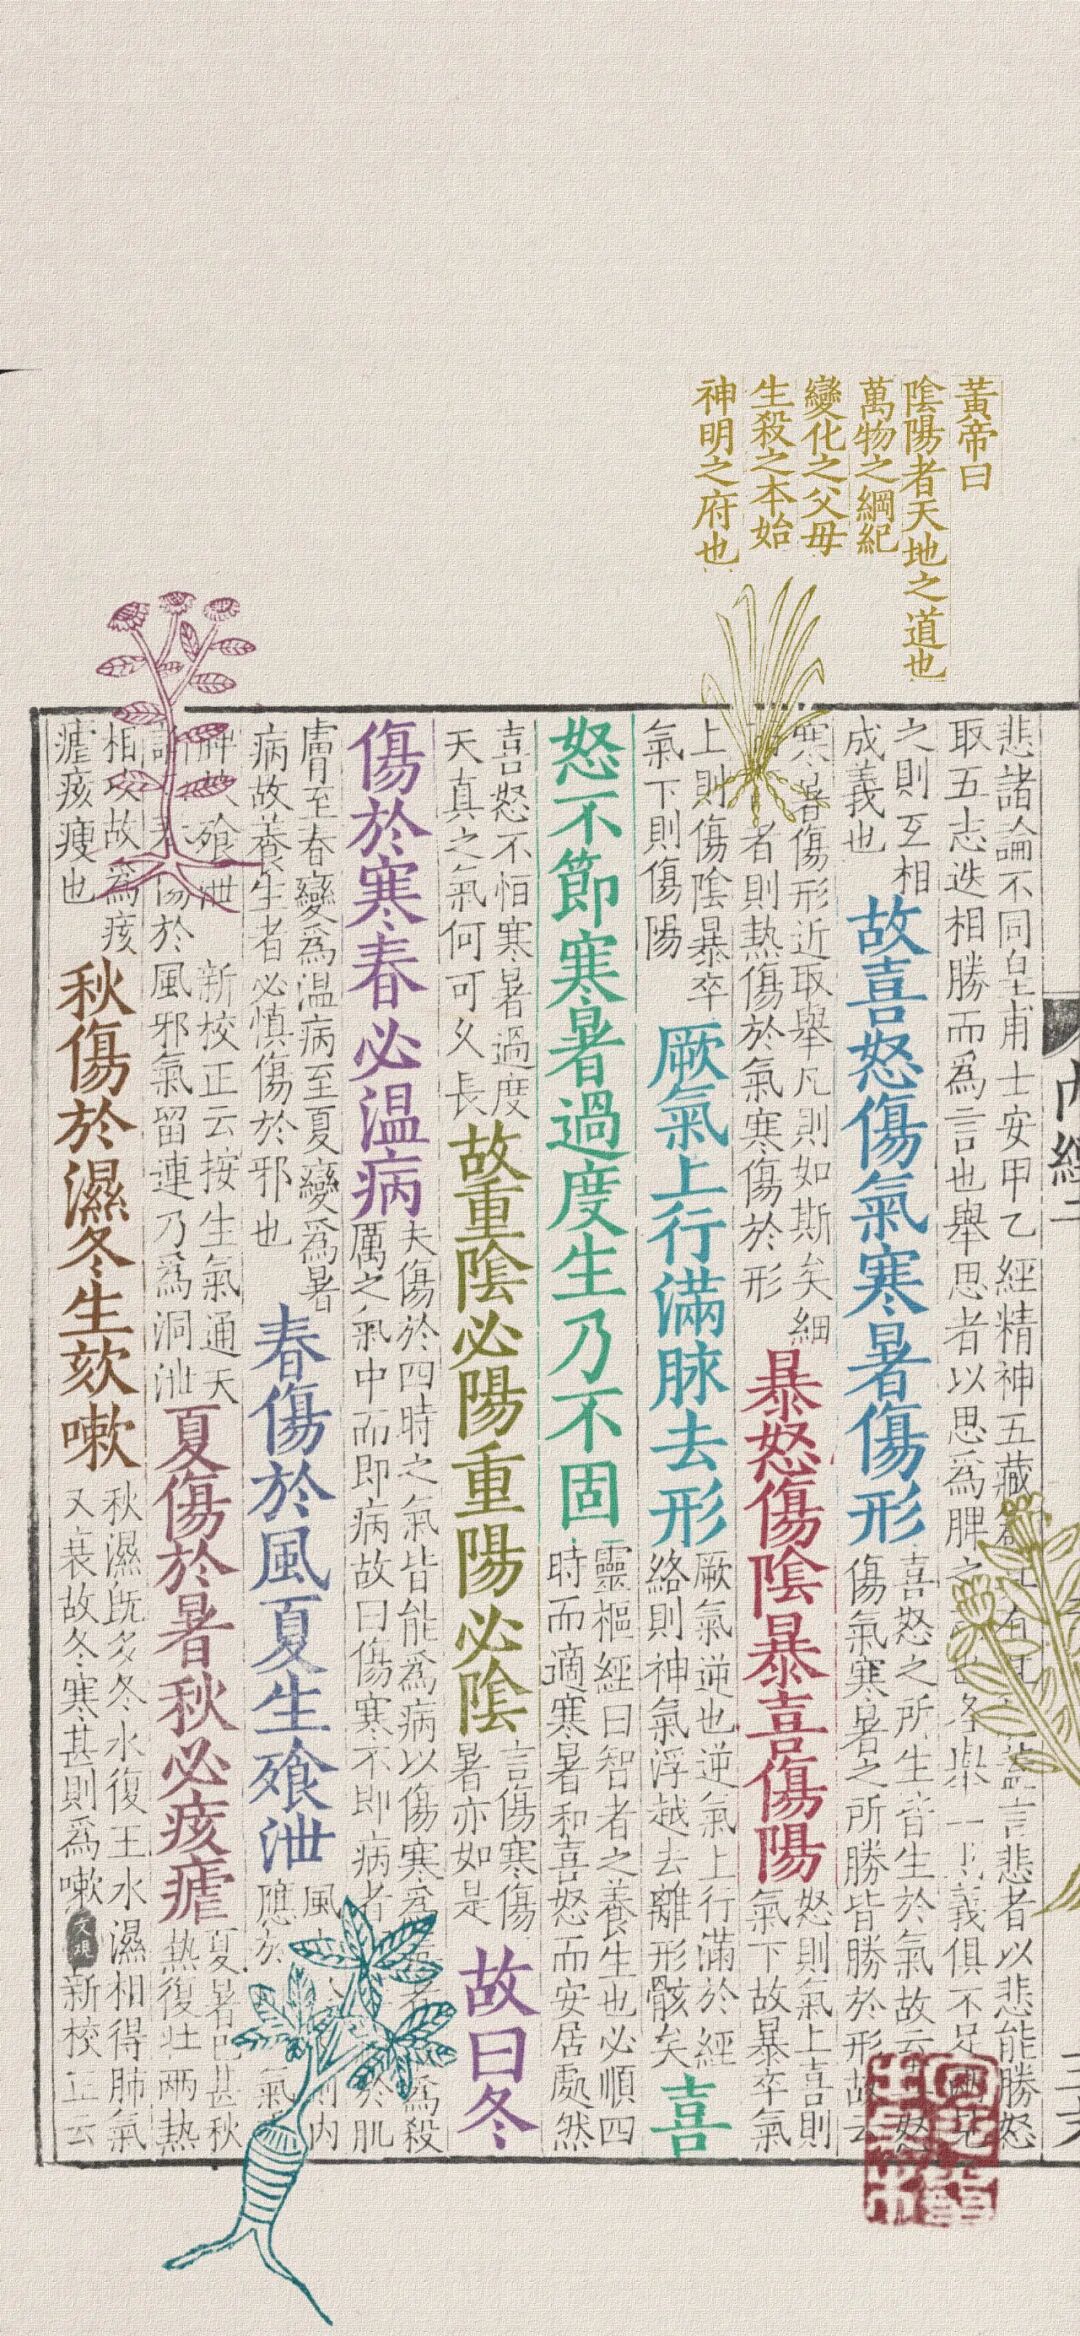 黃帝曰
陰陽者天地之道也
萬物之綱紀
變化之父毋
生殺之本始
神明之府也
悲諸論不同皇甫士安甲乙經精神五藏有言悲者以悲能勝怒
取五志迭相勝而為言也舉思者以思為脾之一義俱不足
之則互相
成義也
故喜怒傷氣寒暑傷形
喜怒之所生皆生於氣故云怒
傷氣寒暑之所勝皆勝於形故云
寒暑傷形近取舉凡則如斯矣細
者則熱傷於氣寒傷於形
暴怒傷陰暴喜傷陽
怒則氣上喜則
氣下故暴卒氣
上則傷陰暴卒
氣下則傷陽
厥氣上行滿脉去形
厥氣逆也逆氣上行滿於經
絡則神氣浮越去離形骸矣
喜
怒不節寒暑過度生乃不固
靈樞經曰智者之養生也必順四
時而適寒暑和喜怒而安居處然
喜怒不恒寒暑過度
天真之氣何可久長
故重陰必陽重陽必陰
言傷寒傷
暑亦如是
故曰冬
傷於寒春必温病
夫傷於四時之氣皆能為病以傷寒為為殺
厲之氣中而即病故曰傷寒不即病者於肌
膚至春變為温病至夏變為暑
病故養生者必慎傷於邪也
春傷於風夏生飱泄
風內
應於氣
飱泄 新校正云按生氣通天
傷於風邪氣留連乃為洞泄
夏傷於暑秋必痎瘧
夏暑已甚秋
熱復壯兩熱
相攻故為痎
瘧痎瘦也
秋傷於濕冬生欬嗽
秋濕既多冬水復王水濕相得肺氣
又衰故冬寒甚則為嗽 新校正云